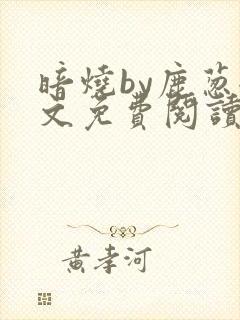 暗燒by鹿葱
文免費閱讀
黄孝河